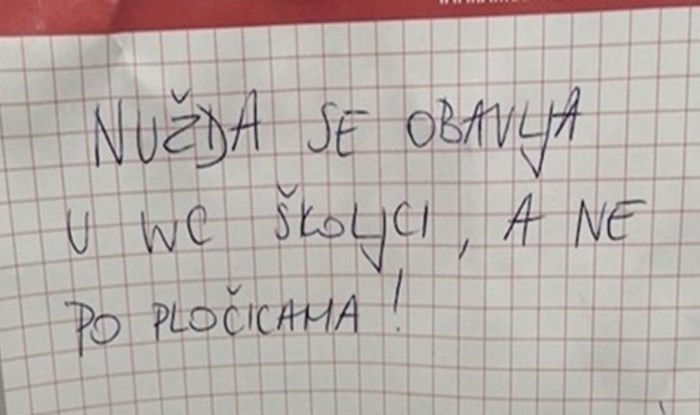 NUŽDA SE OBAVLJA
U WC ŠKOLJCI, A NE
PO PLOČICAMA!